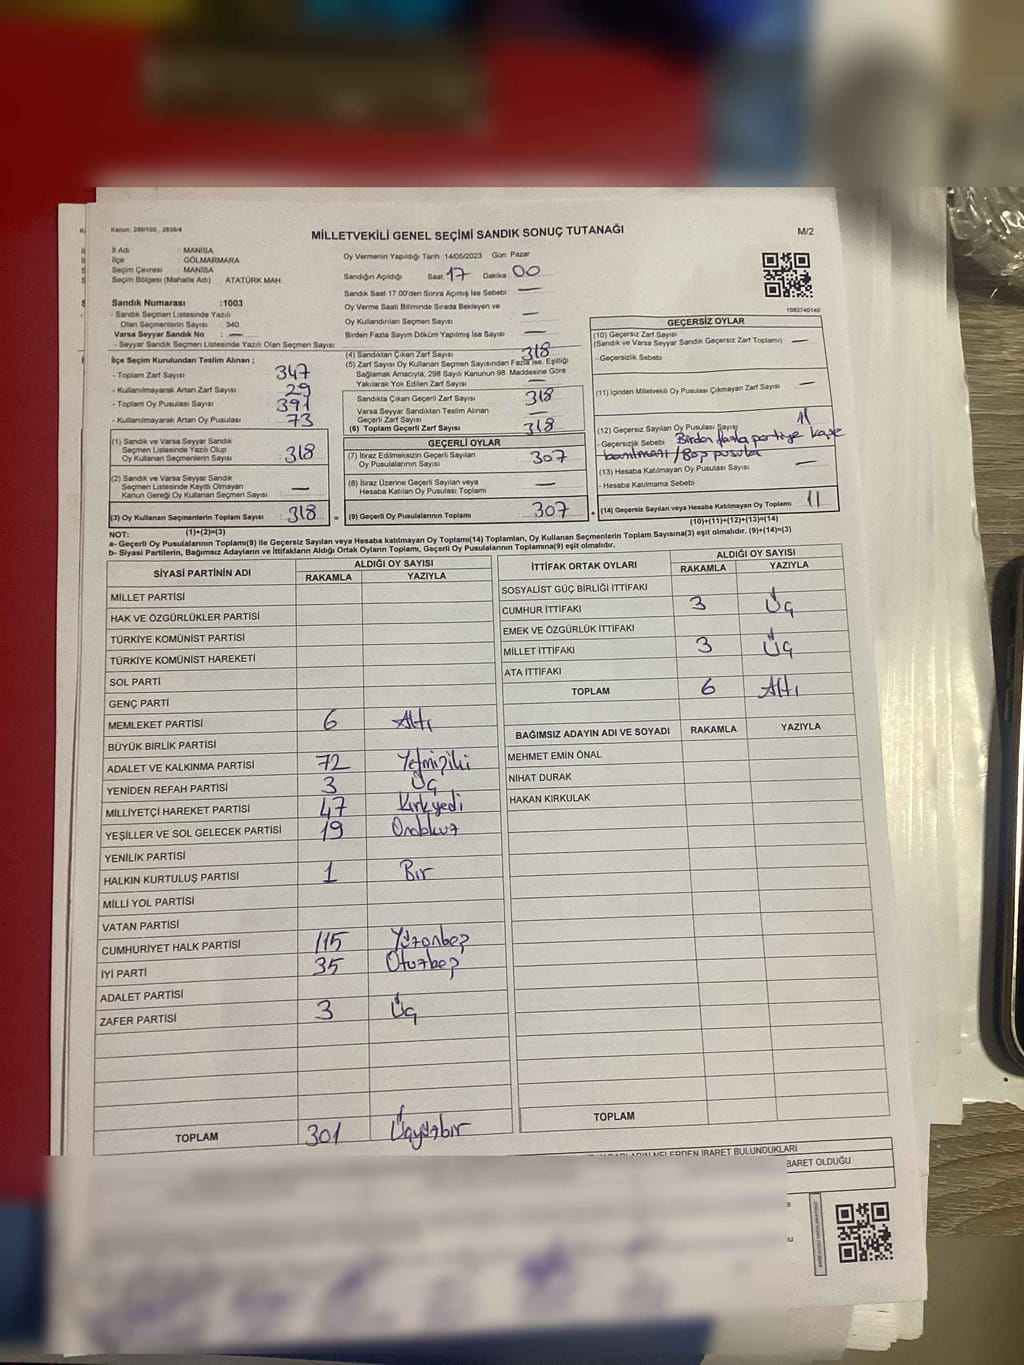 Kanun; 298/105 , 2839/4
MİLLETVEKİLİ GENEL SEÇİMİ SANDIK SONUÇ TUTANAĞI
M/2
İl Adı : MANİSA
İlçe : GÖLMARMARA
Seçim Çevresi : MANİSA
Seçim Bölgesi (Mahalle Adı) : ATATÜRK MAH.
Sandık Numarası :1003
- Sandık Seçmen Listesinde Yazılı
Olan Seçmenlerin Sayısı : 340
Varsa Seyyar Sandık No : —
- Seyyar Sandık Seçmen Listesinde Yazılı Olan Seçmen Sayısı:
Oy Vermenin Yapıldığı Tarih :14/05/2023 Gün: Pazar
Sandığın Açıldığı Saat 17 Dakika 00
Sandık Saat 17.00'den Sonra Açımış İse Sebebi : —
Oy Verme Saati Bitiminde Sırada Bekleyen ve
Oy Kullandırılan Seçmen Sayısı : —
Birden Fazla Sayım Döküm Yapılmış İse Sayısı : —
1083740140
İlçe Seçim Kurulundan Teslim Alınan ;
- Toplam Zarf Sayısı : 347
- Kullanılmayarak Artan Zarf Sayısı : 29
- Toplam Oy Pusulası Sayısı : 391
- Kullanılmayarak Artan Oy Pusulası : 73
(1) Sandık ve Varsa Seyyar Sandık
Seçmen Listesinde Yazılı Olup
Oy Kullanan Seçmenlerin Sayısı : 318
(2) Sandık ve Varsa Seyyar Sandık
Seçmen Listesinde Kayıtlı Olmayan
Kanun Gereği Oy Kullanan Seçmen Sayısı : —
(3) Oy Kullanan Seçmenlerin Toplam Sayısı : 318
(1)+(2)=(3)
(4) Sandıktan Çıkan Zarf Sayısı : 318
(5) Zarf Sayısı Oy Kullanan Seçmen Sayısından Fazla İse, Eşitliği
Sağlamak Amacıyla, 298 Sayılı Kanunun 98. Maddesine Göre
Yakılarak Yok Edilen Zarf Sayısı : —
Sandıkta Çıkan Geçerli Zarf Sayısı : 318
Varsa Seyyar Sandıktan Teslim Alınan
Geçerli Zarf Sayısı : —
(6) Toplam Geçerli Zarf Sayısı : 318
GEÇERLİ OYLAR
(7) İtiraz Edilmeksizin Geçerli Sayılan
Oy Pusulalarının Sayısı : 307
(8) İtiraz Üzerine Geçerli Sayılan veya
Hesaba Katılan Oy Pusulası Toplamı : —
= (9) Geçerli Oy Pusulalarının Toplamı : 307
GEÇERSİZ OYLAR
(10) Geçersiz Zarf Sayısı
(Sandık ve Varsa Seyyar Sandık Geçersiz Zarf Toplamı) : —
- Geçersizlik Sebebi :
(11) İçinden Milletvekili Oy Pusulası Çıkmayan Zarf Sayısı : —
(12) Geçersiz Sayılan Oy Pusulası Sayısı : 11
- Geçersizlik Sebebi : Birden fazla partiye kaşe
basılması / Boş pusula
(13) Hesaba Katılmayan Oy Pusulası Sayısı : —
- Hesaba Katılmama Sebebi :
+ (14) Geçersiz Sayılan veya Hesaba Katılmayan Oy Toplamı : 11
(10)+(11)+(12)+(13)=(14)
NOT:
a- Geçerli Oy Pusulalarının Toplamı(9) ile Geçersiz Sayılan veya Hesaba katılmayan Oy Toplamı(14) Toplamları, Oy Kullanan Seçmenlerin Toplam Sayısına(3) eşit olmalıdır. (9)+(14)=(3)
b- Siyasi Partilerin, Bağımsız Adayların ve İttifakların Aldığı Ortak Oyların Toplamı, Geçerli Oy Pusulalarının Toplamına(9) eşit olmalıdır.
SİYASİ PARTİNİN ADI ALDIĞI OY SAYISI
RAKAMLA YAZIYLA
MİLLET PARTİSİ
HAK VE ÖZGÜRLÜKLER PARTİSİ
TÜRKİYE KOMÜNİST PARTİSİ
TÜRKİYE KOMÜNİST HAREKETİ
SOL PARTİ
GENÇ PARTİ
MEMLEKET PARTİSİ 6 Altı
BÜYÜK BİRLİK PARTİSİ
ADALET VE KALKINMA PARTİSİ 72 Yetmişiki
YENİDEN REFAH PARTİSİ 3 Üç
MİLLİYETÇİ HAREKET PARTİSİ 47 Kırkyedi
YEŞİLLER VE SOL GELECEK PARTİSİ 19 Ondokuz
YENİLİK PARTİSİ
HALKIN KURTULUŞ PARTİSİ 1 Bır
MİLLİ YOL PARTİSİ
VATAN PARTİSİ
CUMHURİYET HALK PARTİSİ 115 Yüzonbeş
İYİ PARTİ 35 Otuzbeş
ADALET PARTİSİ
ZAFER PARTİSİ 3 Üç
TOPLAM 301 Üçyüzbır
İTTİFAK ORTAK OYLARI ALDIĞI OY SAYISI
RAKAMLA YAZIYLA
SOSYALİST GÜÇ BİRLİĞİ İTTİFAKI
CUMHUR İTTİFAKI 3 Üç
EMEK VE ÖZGÜRLÜK İTTİFAKI
MİLLET İTTİFAKI 3 Üç
ATA İTTİFAKI
TOPLAM 6 Altı
BAĞIMSIZ ADAYIN ADI VE SOYADI RAKAMLA YAZIYLA
MEHMET EMİN ÖNAL
NİHAT DURAK
HAKAN KIRKULAK
TOPLAM
NELERDEN İBARET BULUNDUKLARI
BARET OLDUĞU